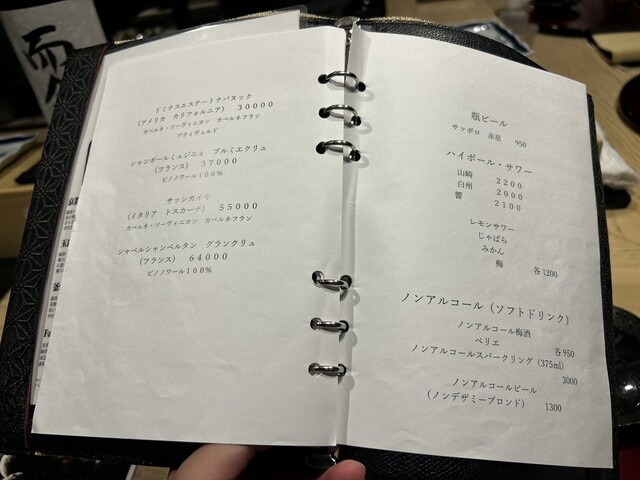 ドミナスエステートナパヌック
(アメリカ カリフォルニア) 30000
カベルネ・ソーヴィニヨン カベルネフラン
プティヴェルド
シャンボールミュジニィ プルミエクリュ
(フランス) 37000
ピノノワール100%
サッシカイヤ
(イタリア トスカーナ) 55000
カベルネ・ソーヴィニヨン カベルネフラン
シャペルシャンベルタン グランクリュ
(フランス) 64000
ピノノワール100%
瓶ビール
サッポロ 赤星 950
ハイボール・サワー
山崎 2200
白州 2000
響 2100
レモンサワー
じゃばら
みかん
梅
各1200
ノンアルコール (ソフトドリンク)
ノンアルコール梅酒
ペリエ
各950
ノンアルコールスパークリング (375ml)
3000
ノンアルコールビール
(ノンデザミーブロンド) 1300